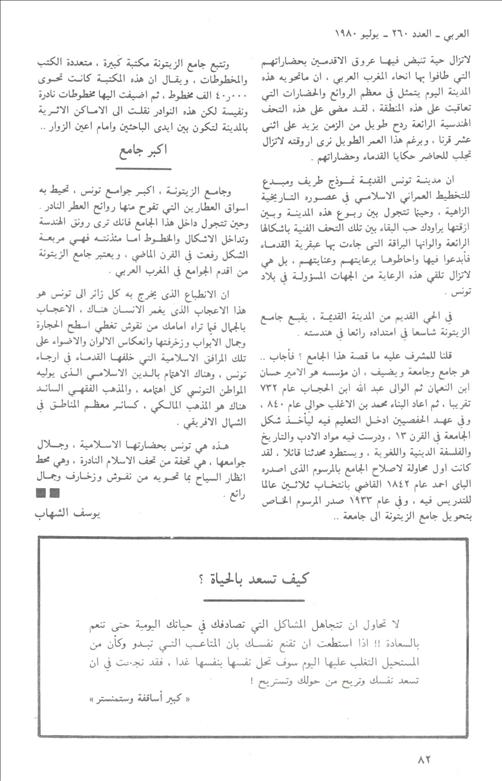 العربي ـ العدد ٢٦٠ ـ يوليو ١٩٨٠
لاتزال حية تنبض فيها عروق الاقدمين بحضاراتهم
التي طافوا بها انحاء المغرب العربي ، ان ماتحويه هذه
المدينة اليوم يتمثل في معظم الروائع والحضارات التي
تعاقبت على هذه المنطقة ، لقد مضى على هذه التحف
الهندسية الرائعة ردح طويل من الزمن يزيد على اثنى
عشر قرنا ، وبرغم هذا العمر الطويل نرى اروقته لاتزال
تجلب للحاضر حكايا القدماء وحضاراتهم .
ان مدينة تونس القديمة نموذج طريف ومبدع
للتخطيط العمراني الاسلامي في عصوره التاريخية
الزاهية ، وحينما تتجول بين ربوع هذه المدينة وبين
ازقتها يراودك حب البقاء بين تلك التحف الفنية باشكالها
الرائعة والوانها البراقة التي جاءت بها عبقرية القدماء
فأبدعوا فيها واحاطوها برعايتهم وعنايتهم ، بل هي
لاتزال تلقي هذه الرعاية من الجهات المسؤولة في بلاد
تونس .
في الحي القديم من المدينة القديمة ، يقبع جامع
الزيتونة شاسعا في امتداده رائعا في هندسته .
قلنا للمشرف عليه ما قصة هذا الجامع ؟ فأجاب ..
هو جامع وجامعة ويضيف ، ان مؤسسه هو الامير حسان
ابن النعمان ثم الوالى عبد الله ابن الحبحاب عام ٧٣٢
تقريبا ، ثم اعاد البناء محمد بن الاغلب حوالي عام ٨٤٠ ،
وفي عهد الحفصيين ادخل التعليم فيه ليأخذ شكل
الجامعة في القرن ١٣ ، ودرست فيه مواد الادب والتاريخ
والفلسفة الدينية واللغوية ، ويستطرد محدثنا قائلا ، لقد
كانت اول محاولة لاصلاح الجامع بالمرسوم الذى اصدره
الباى احمد عام ١٨٤٢ القاضي بانتخاب ثلاثين عالما
للتدريس فيه ، وفي عام ١٩٣٣ صدر المرسوم الخاص
بتحويل جامع الزيتونة الى جامعة ..
وتتبع جامع الزيتونة مكتبة كبيرة ، متعددة الكتب
والمخطوطات ، ويقال ان هذه المكتبة كانت تحوى
٤٠,٠٠٠ الف مخطوط ، ثم اضيفت اليها مخطوطات نادرة
ونفيسة لكن هذه النوادر نقلت الى الاماكن الاثرية
بالمدينة لتكون بين ايدى الباحثين وامام اعين الزوار ..
اكبر جامع
وجامع الزيتونة ، اكبر جوامع تونس ، تحيط به
اسواق العطارين التي تفوح منها روائح العطر النادر .
وحين تتجول داخل هذا الجامع فانك ترى رونق الهندسة
وتداخل الاشكال والخطوط اما مئذنته فهي مربعة
الشكل رفعت في القرن الماضي ، ويعتبر جامع الزيتونة
من اقدم الجوامع في المغرب العربي .
ان الانطباع الذى يخرج به كل زائر الى تونس هو
هذا الاعجاب الذى يغمر الانسان هناك ، الاعجاب
بالجمال فيما تراه امامك من نقوش تغطي اسطح الحجارة
وجمال الابواب وزخرفتها وانعكاس الالوان والاضواء على
تلك المرافق الاسلامية التي خلفها القدماء في ارجاء
تونس ، وهناك الاهتمام بالدين الاسلامي الذى يوليه
المواطن التونسي كل اهتمامه ، والمذهب الفقهي السائد
هناك هو المذهب المالكي ، كسائر معظم المناطق في
الشمال الافريقي .
هذه هي تونس بحضارتها الاسلامية ، وجلال
جوامعها ، هي تحفة من تحف الاسلام النادرة ، وهي محط
انظار السياح بما تحويه من نقوش وزخارف وجمال
رائع .
يوسف الشهاب
كيف تسعد بالحياة ؟
لا تحاول ان تتجاهل المشاكل التي تصادفك في حياتك اليومية حتى تنعم
بالسعادة !! اذا استطعت ان تقنع نفسك بان المتاعب التي تبدو وكأن من
المستحيل التغلب عليها اليوم سوف تحل نفسها بنفسها غدا ، فقد نجحت في ان
تسعد نفسك وتريح من حولك وتستريح !
« كبير أساقفة وستمنستر »
٨٢